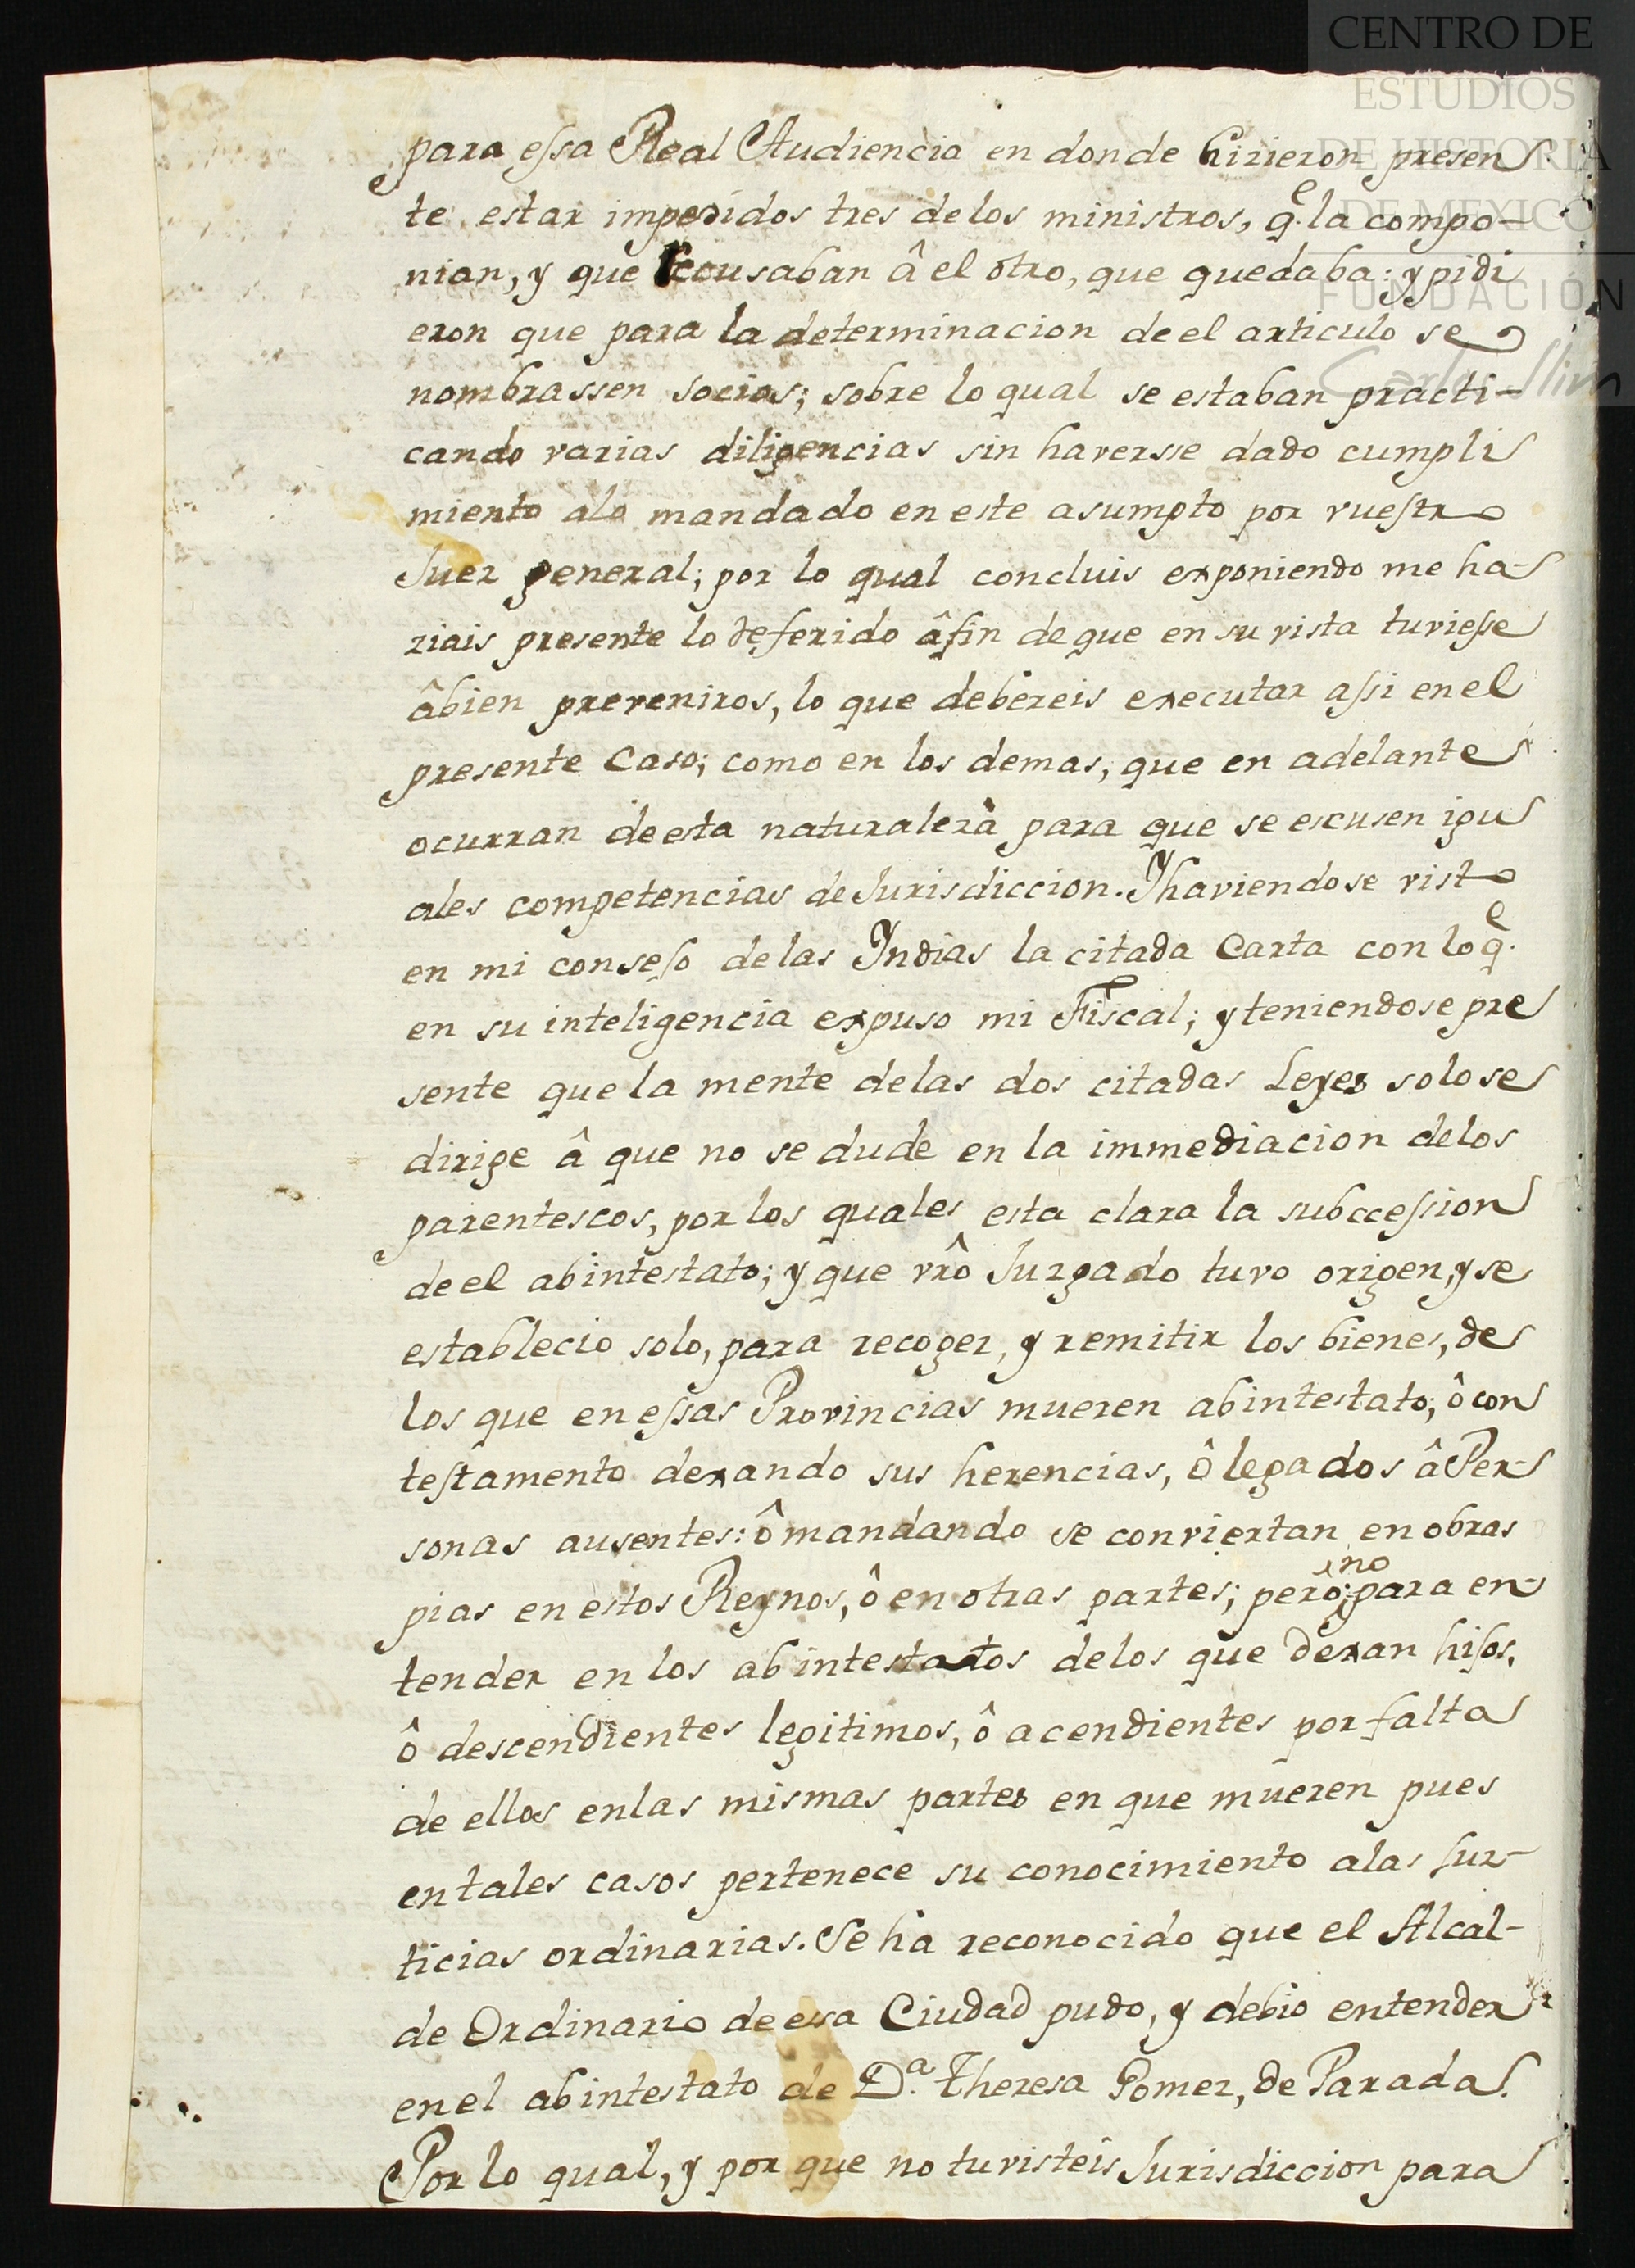 CENTRO DE
ESTUDIOS
DE HISTORIA
DE MEXICO
FUNDACIÓN
Carlos Slim
para essa Real Audiencia en donde hizieron presen
te estar impedidos tres de los ministros, q.e la compo-
nian, y que recusaban â el otro, que quedaba: y pidi
eron que para la determinacion de el articulo se
nombrassen socios; sobre lo qual se estaban practi-
cando varias diligencias sin haversse dado cumpli
miento alo mandado en este asumpto por vuestro
Juez general; por lo qual concluis exponiendo me ha-
ziais presente lo deferido âfin de que en su vista tuviesse
âbien preveniros, lo que debereis executar assi en el
presente Caso; como en los demas, que en adelante
ocurran de esta naturaleza para que se escusen igu
ales competencias de Jurisdiccion. Y haviendose visto
en mi consejo de las Yndias la citada Carta con lo q.e
en su inteligencia expuso mi Fiscal; y teniendose pre
sente que la mente delas dos citadas Leyes solo se
dirige â que no se dude en la immediacion delos
parentescos, por los quales esta clara la subccession
de el abintestato; y que vrô Juzgado tuvo origen, y se
establecio solo, para recoger, y remitir los bienes, de
los que en essas Provincias mueren abintestato; ô con
testamento dexando sus herencias, ô legados â Per-
sonas ausentes: ô mandando se conviertan en obras
pias en estos Reynos, ô en otras partes; pero no para en-
tender en los abintestatos delos que dexan hijos,
ô descendientes legitimos, ô acendientes por falta
de ellos enlas mismas partes en que mueren pues
en tales casos pertenece su conocimiento alas Jus-
ticias ordinarias. Se ha reconocido que el Alcal-
de Ordinario de esa Ciudad pudo, y debio entender
en el abintestato de D.a Theresa Gomez, de Parada.
Por lo qual, y por que no tuvisteis Jurisdiccion para